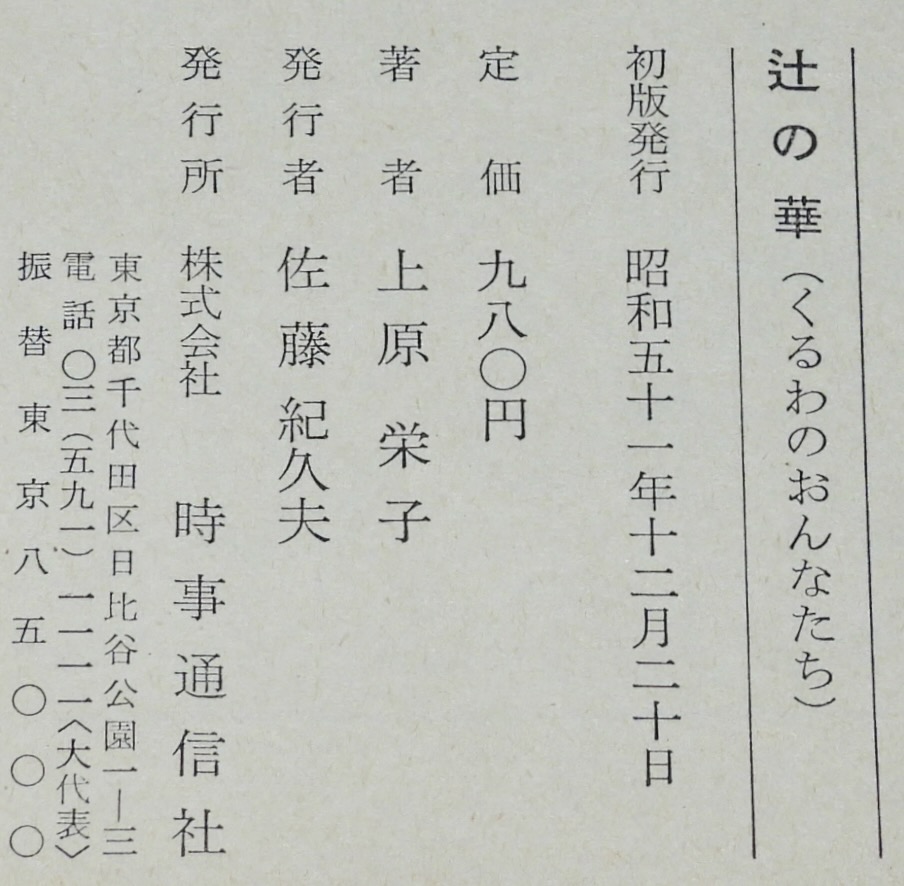 辻の華（くるわのおんなたち）
初版発行　昭和五十一年十二月二十日
定価　九八〇円
著者　上原栄子
発行者　佐藤紀久夫
発行所　株式会社　時事通信社
東京都千代田区日比谷公園一―三
電話〇三（五九一）一一一一〈大代表〉
振替東京八五〇〇〇